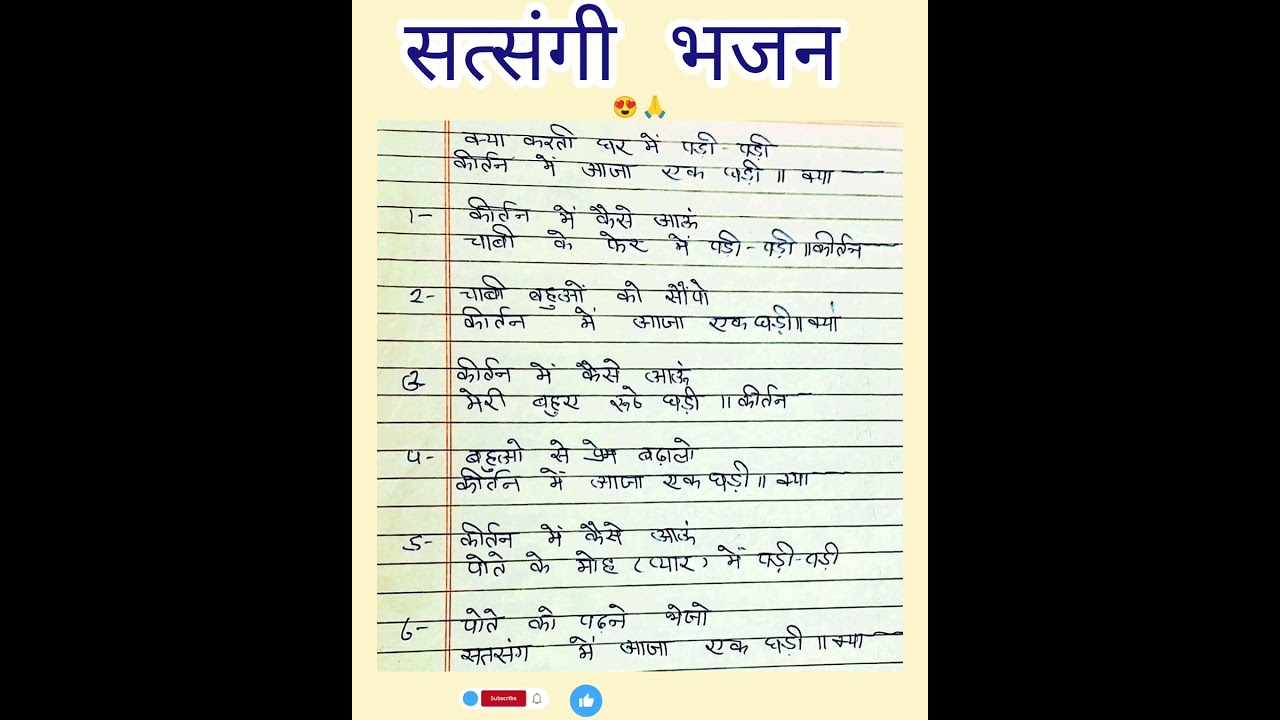 सत्संगी भजन
क्या करती घर में पड़ी-पड़ी
कीर्तन में आजा एक घड़ी ॥ क्या
1- कीर्तन में कैसे आऊं
चाबी के फेर में पड़ी-पड़ी ॥ कीर्तन
2- चाबी बहुओं को सौंपो
कीर्तन में आजा एक घड़ी ॥ क्या
3 कीर्तन में कैसे आऊं
मेरी बहुए रूठे घड़ी ॥ कीर्तन
4- बहुओ से प्रेम बढ़ालो
कीर्तन में आजा एक घड़ी ॥ क्या
5- कीर्तन में कैसे आऊं
पोते के मोह (प्यार) में पड़ी-पड़ी
6- पोते को पढ़ने भेजो
सतसंग में आजा एक घड़ी ॥ क्या
Subscribe